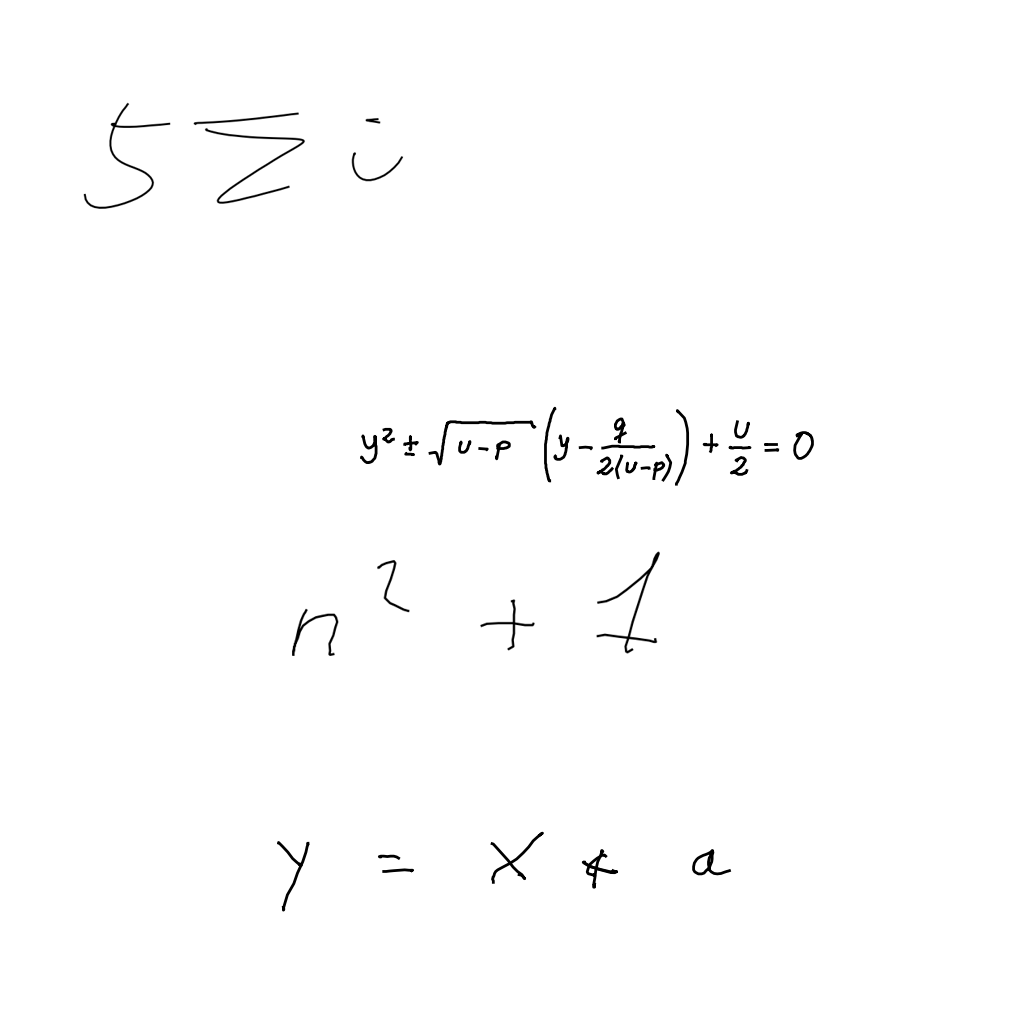 5 \overline{z} i
y^2 \pm \sqrt{u-p} \left( y - \frac{q}{2(u-p)} \right) + \frac{u}{2} = 0
n^2 + 1
y = x * a